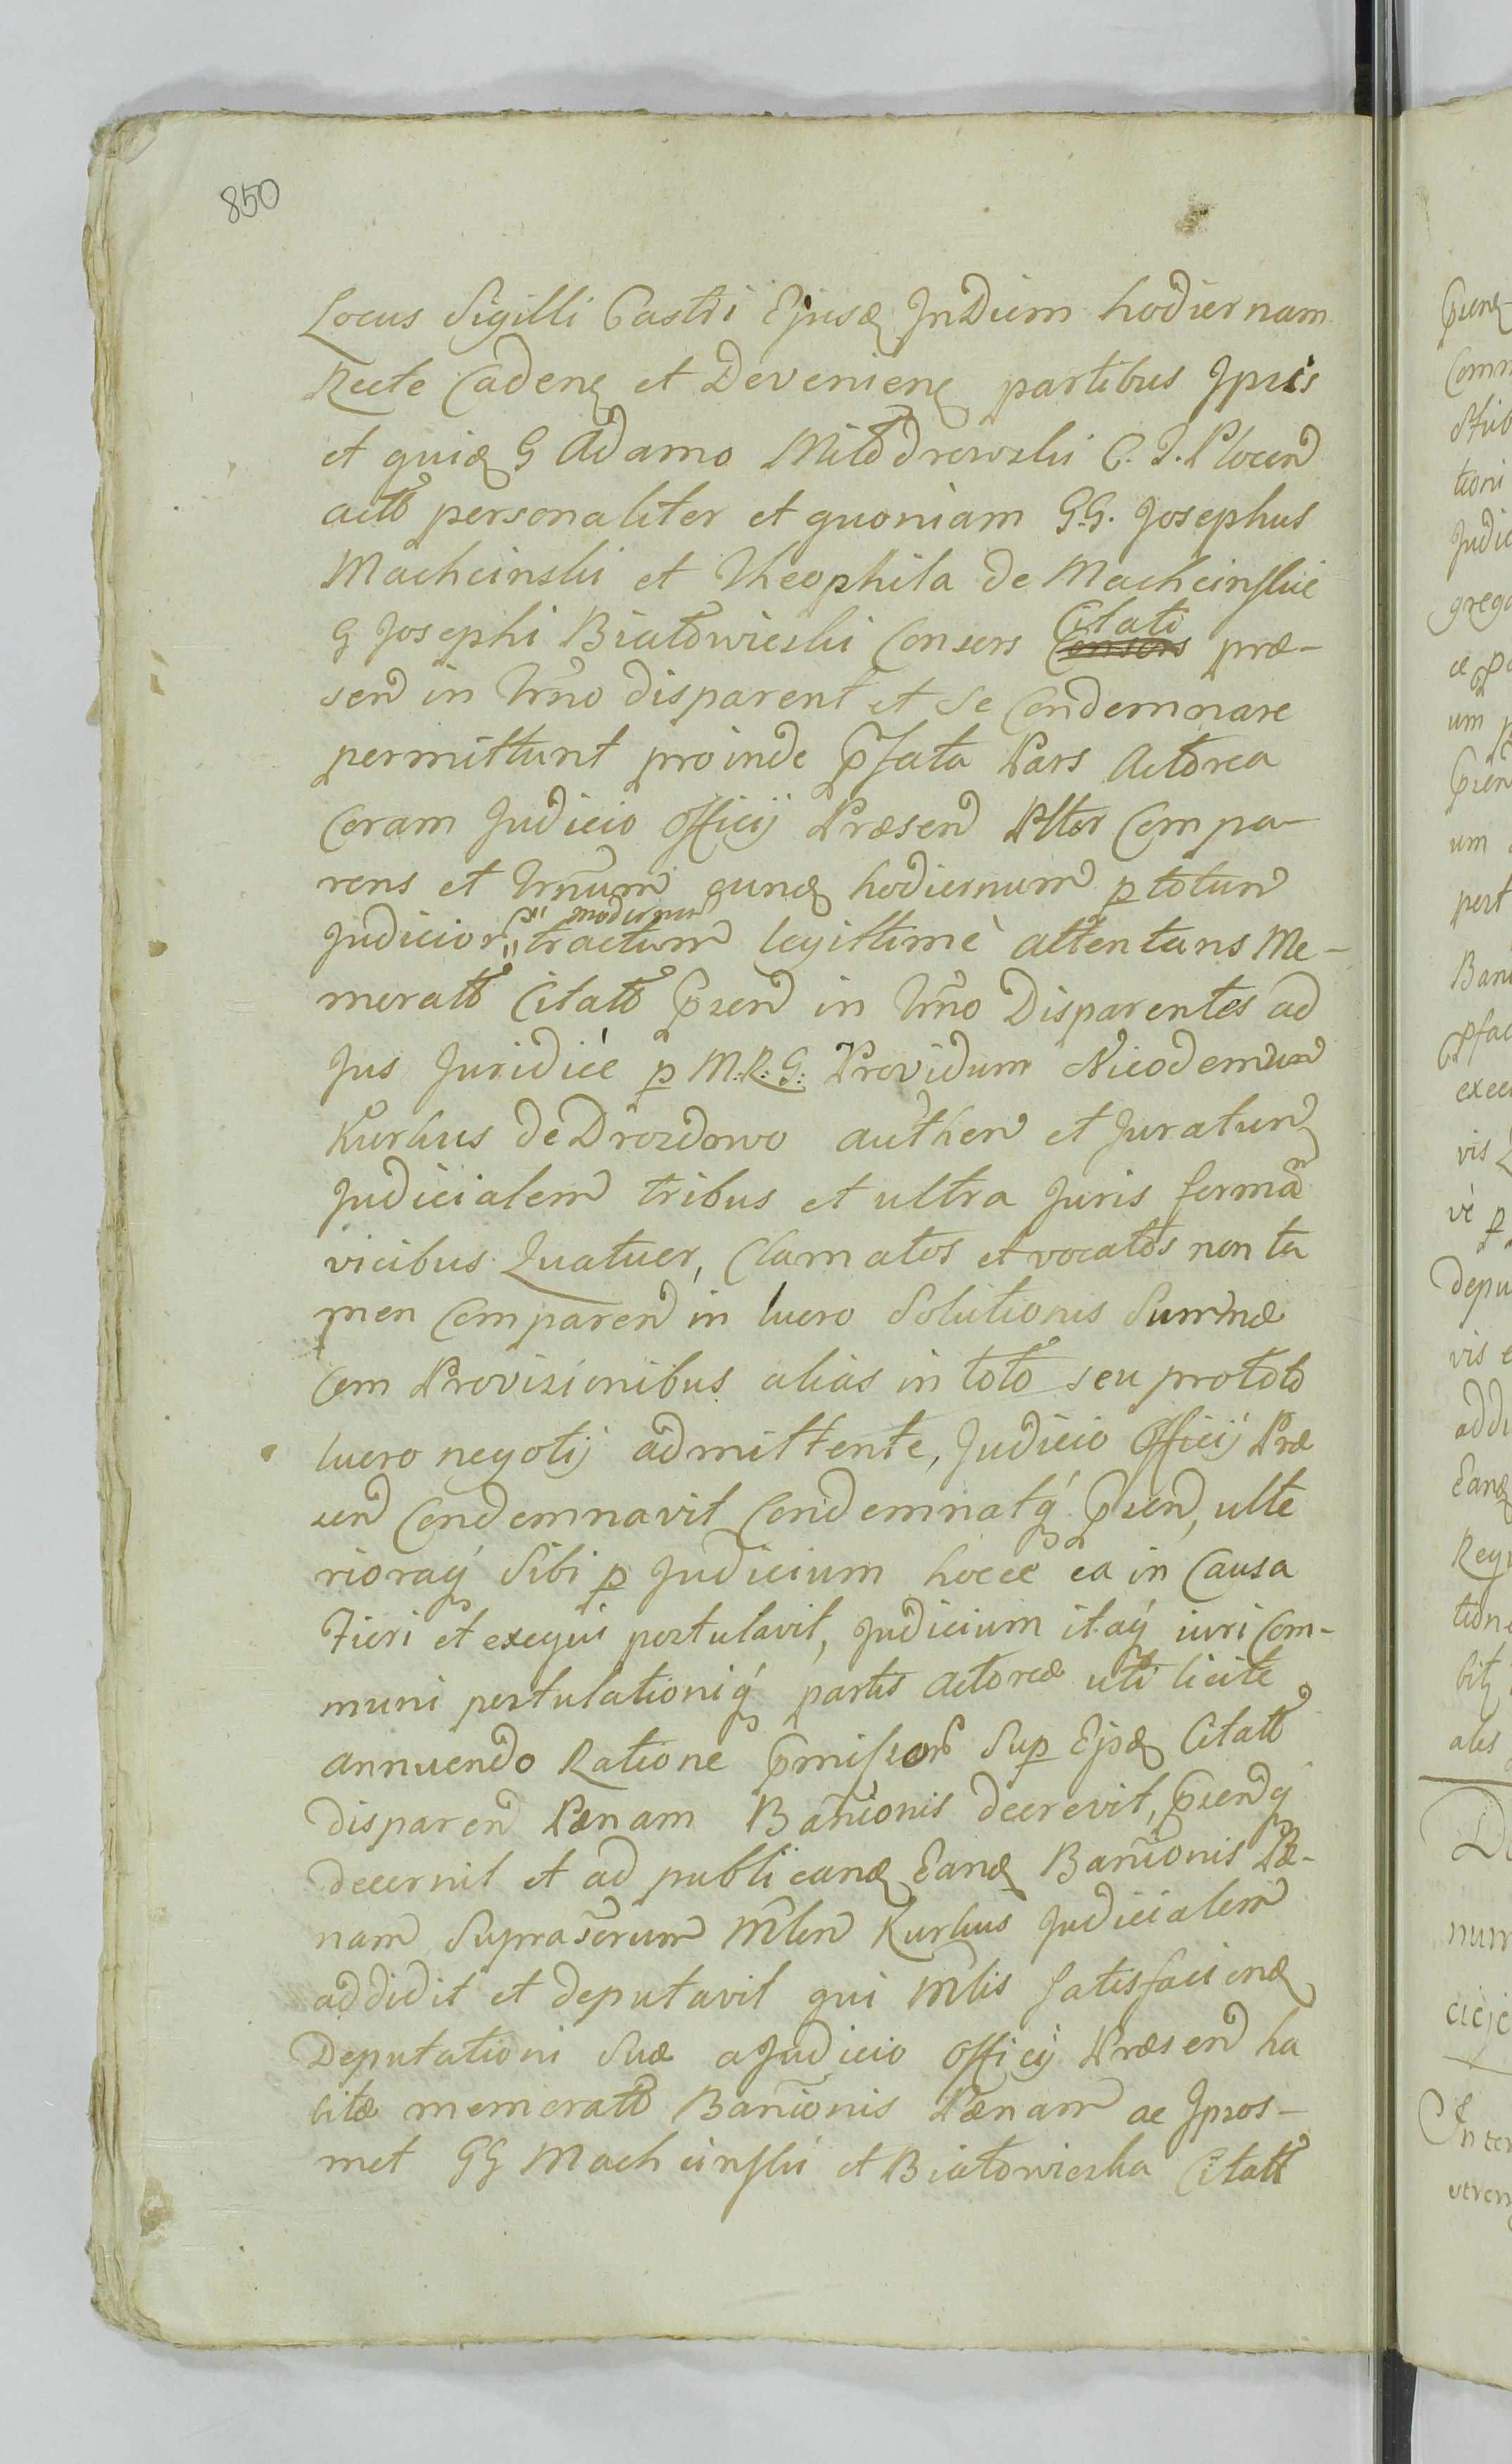 850
Locus Sigilli Castri Ejusq InDiem hodiernam
Recte Cadenq et Devenienq partibus Ipsis
et quiq G Adamo Miłodrowski C. T. Plocen
actto personaliter et quoniam G.G. Josephus
Machcinski et Theophila de Machcinskie
G Josephi Białowieski Consors Citati præ-
sen in Trno disparent et Se Condemnare
permittunt proinde pfata Pars Actorea
Coram Judicio Officij Præsen Pltter Compa-
rens et Trnum eunq hodiernum p totum
Judicior pti modernum tractum legittime attentans Me-
moratt Citatt pzen in Trno Disparentes ad
Jus Juridice p M.R.G. Providum Nicodemum
Kurkus de Drozdowo authen et Juratum
Judicialem tribus et ultra Juris forma
vicibus Quatuor, Clamatos et vocatos non ta
men Comparen in lucro Solutionis Summæ
Cum Provizionibus alias in toto seu pro toto
lucro negotij admittente, Judicio Officij Præ
zen Condemnavit Condemnatq pzen, ulte
rioraq Sibi p Judicium hocce ea in Causa
Fieri et exequi postulavit, Judicium itaq iuri Com-
muni postulationiq partis Actoreæ uti licite
annuendo Ratione pmissor Sup Ejsq Citatt
disparen Pœnam Bannionis decrevit, pzendq
decernit et ad publicanq Eanq Bannionis Pœ-
nam Suprascrum Mlen Kurkus Judicialem
addidit et deputavit qui Mlis satisfacienq
Deputationi Suæ a Judicio Officij Præsen ha
bitæ memoratt Bannionis Pœnam ac Ipsos-
met GG Machcinski et Białowieska Citatt